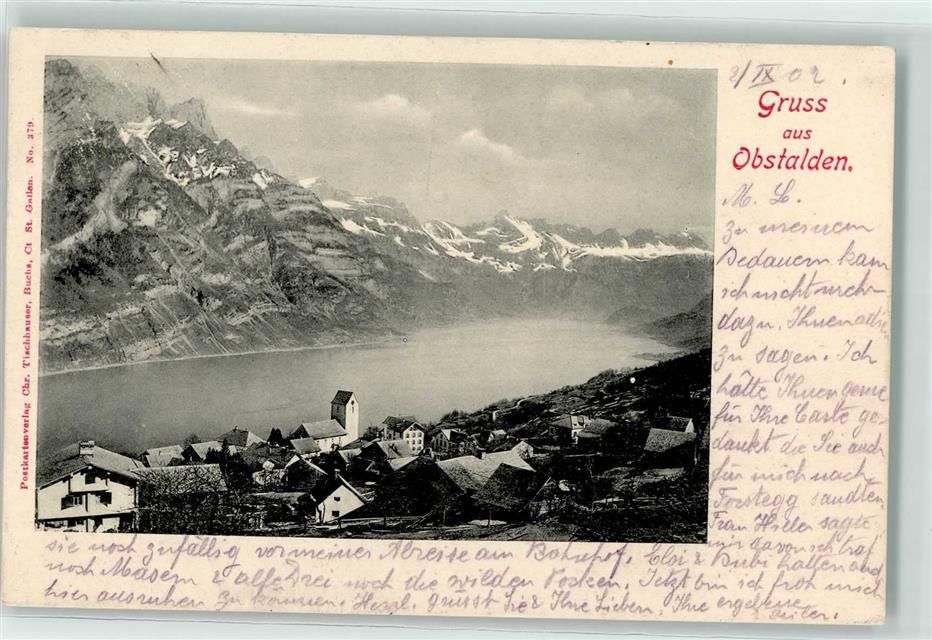 2/IX 02.
Gruss
aus
Obstalden.
M. L.
Zu meinem
Bedauern kam
ich nicht mehr
dazu, Ihnen adie
zu sagen. Ich
hätte Ihnen gerne
für Ihre Carte ge-
dankt die Sie auch
für mich nach
Forstegg sandten.
Frau Hiller sagte
mir davon, ich traf
sie noch zufällig vor meiner Abreise am Bahnhof. Elsi & Bubi hatten auch
noch Masern & alle Drei noch die wilden Pocken. Jetzt bin ich froh mich
hier ausruhen zu können. Herzl. grüsst Sie & Ihre Lieben, Ihre ergebene
Postkartenverlag Chr. Tischhauser, Buchs, Ct St. Gallen. No. 379.